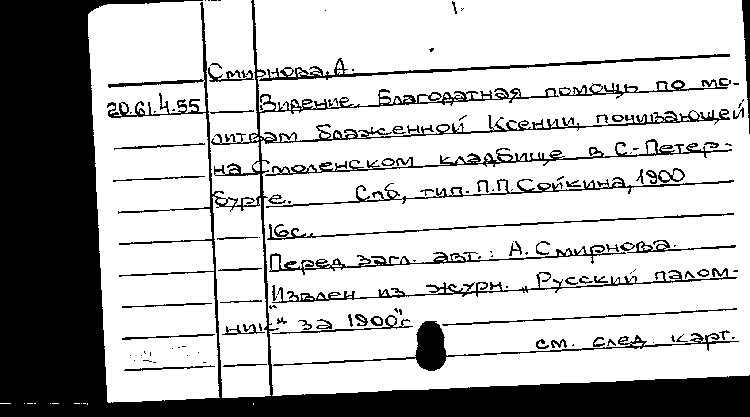 1.
Смирнова, А.
20.61.4.55 Видение. Благодатная помощь по мо-
литвам блаженной Ксении, почивающей
на Смоленском кладбище в С.-Петер-
бурге. Спб, тип. П.П. Сойкина, 1900
16с.
Перед загл. авт.: А. Смирнова.
"Извлеч из журн. „Русский палом-
ник" за 1900"г
см. след. карт.